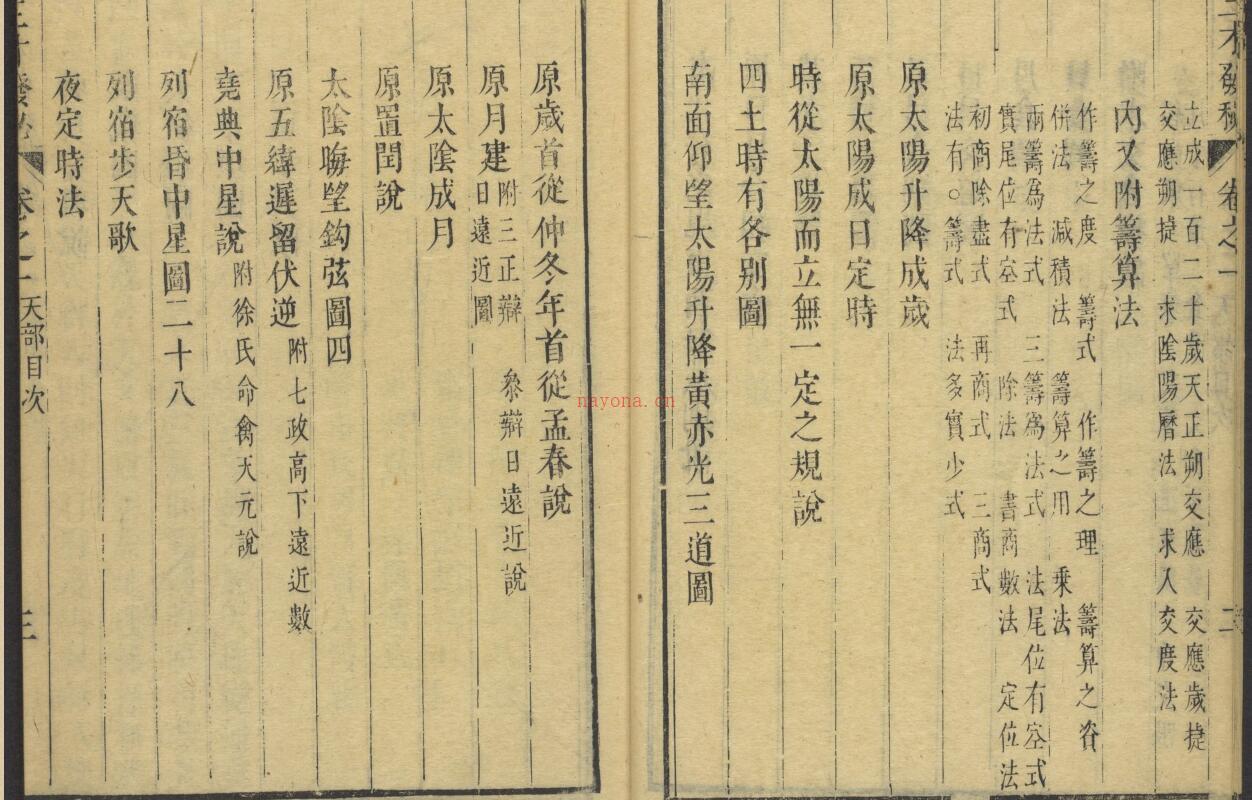 三才發秘 卷之一 二
立成一百二十歲天正朔交應 交應歲捷
交應朔捷 求陰陽曆法 求入交度法
內又附籌算法
作籌之度 籌式 作籌之理 籌算之資
併法 減積法 籌算之用 乘法
兩籌爲法式 三籌爲法式 法尾位有空式
實尾位有空式 除法 書商數法 定位法
初商除盡式 再商式 三商式
法有○籌式 法多實少式
原太陽升降成歲
原太陽成日定時
時從太陽而立無一定之規說
四土時有各别圖
南面仰望太陽升降黃赤光三道圖
原歲首從仲冬年首從孟春說
原月建 附三正辯 叅辯日遠近說
日遠近圖
原太陰成月
原置閏說
太陰晦望鈎弦圖四
原五緯遲留伏逆 附七政高下遠近數
堯典中星說 附徐氏命禽天元說
列宿昏中星圖二十八
列宿步天歌
夜定時法
卷之一 天部目次 三
nayona.cn